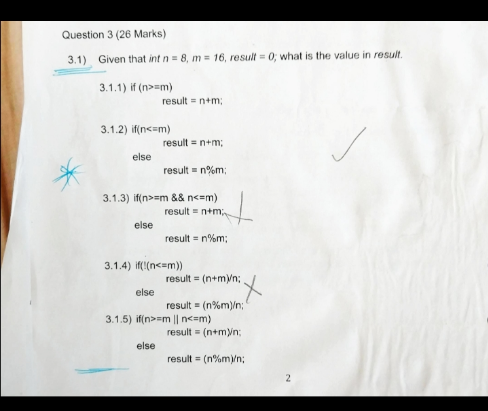 Question 3 (26 Marks)
3.1) Given that int n = 8, m = 16, result = 0; what is the value in result.
3.1.1) if (n>=m)
result = n+m;
3.1.2) if(n<=m)
result = n+m;
else
result = n%m;
3.1.3) if(n>=m && n<=m)
result = n+m;
else
result = n%m;
3.1.4) if(!(n<=m))
result = (n+m)/n;
else
result = (n%m)/n;
3.1.5) if(n>=m || n<=m)
result = (n+m)/n;
else
result = (n%m)/n;
2